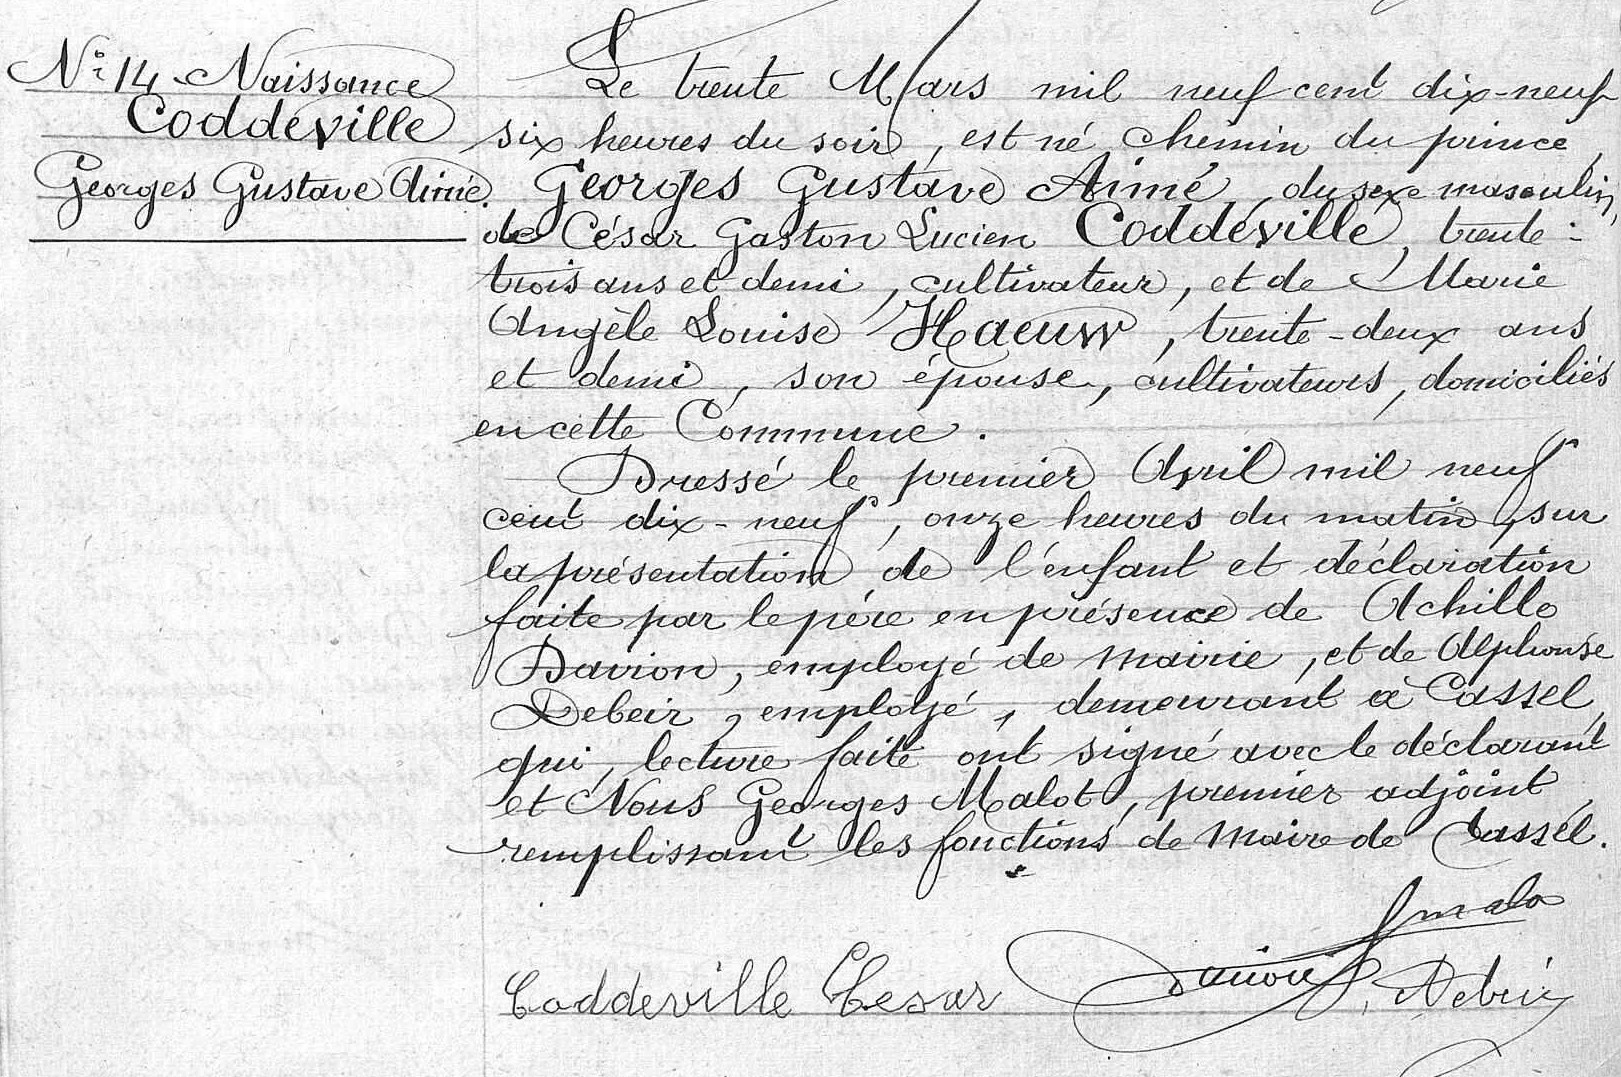 N° 14 Naissance
Coddéville
Georges Gustave Aimé.
Le trente Mars mil neuf cent dix-neuf
six heures du soir, est né chemin du prince,
Georges Gustave Aimé, du sexe masculin,
de César Gaston Lucien Coddéville, trente-
trois ans et demi, cultivateur, et de Marie
Angèle Louise Haeuw, trente-deux ans
et demi, son épouse, cultivateurs, domiciliés
en cette Commune.
Dressé le premier Avril mil neuf
cent dix-neuf, onze heures du matin, sur
la présentation de l'enfant et déclaration
faite par le père en présence de Achille
Davion, employé de mairie, et de Alphonse
Debeir, employé, demeurant à Cassel,
qui, lecture faite ont signé avec le déclarant
et Nous Georges Malot, premier adjoint,
remplissant les fonctions de Maire de Cassel.
Coddeville Cesar Davion Debeir